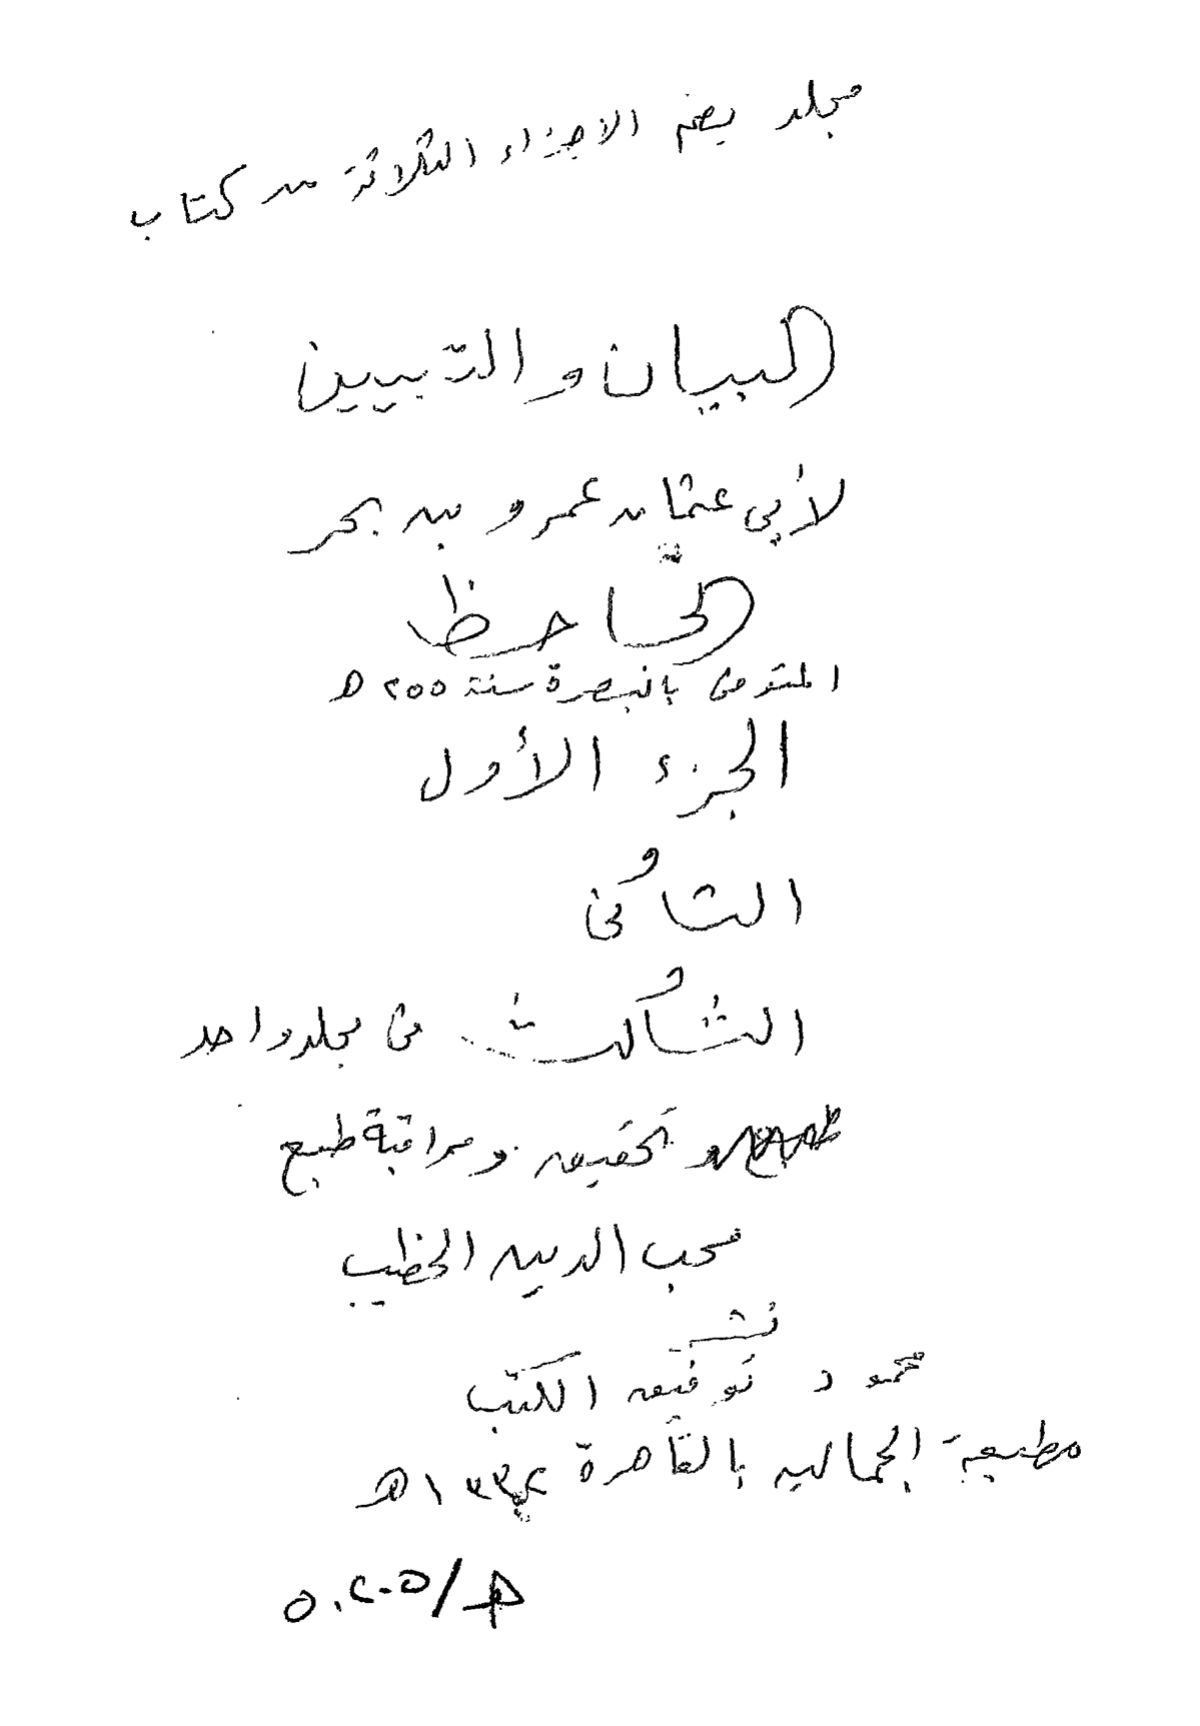 مجلد يضم الاجزاء الثلاثة من كتاب
البيان والتبيين
لأبي عثمان عمرو بن بحر
الجاحظ
المتوفى بالبصرة سنة ٢٥٥ ه
الجزء الأول
و
الثاني
و
الثالث في مجلد واحد
وتحقيق ومراقبة طبع
محب الدين الخطيب
نشر
محمود توفيق الكتب
مطبعة الجماليه بالقاهرة ١٣٣٢ ه